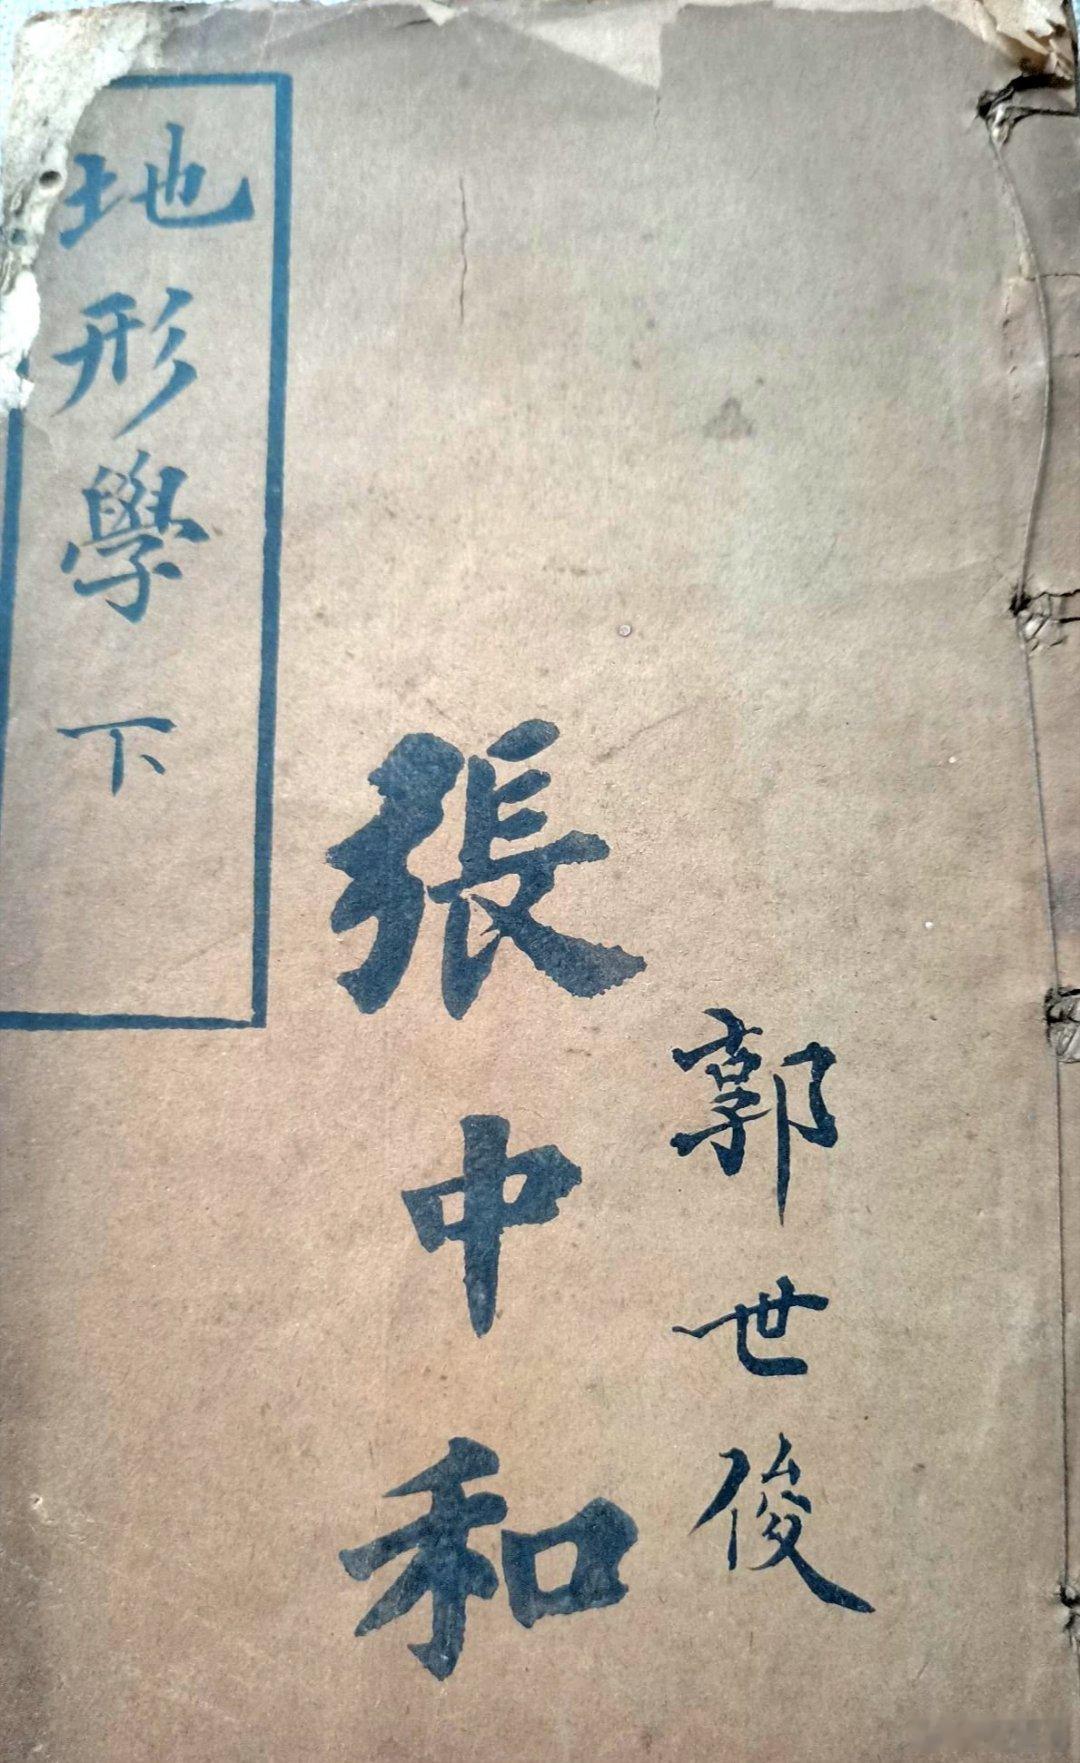 郭世俊
張中和
地形學下